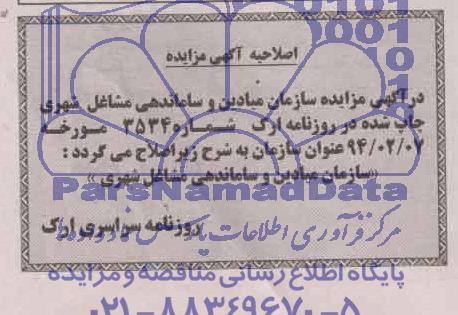 اصلاحیه آگهی مزایده
در آگهی مزایده سازمان میادین و ساماندهی مشاغل شهری
چاپ شده در روزنامه ارک شماره ۳۵۳۴ مورخه
۹۴/۰۲/۰۷ عنوان سازمان به شرح زیر اصلاح می گردد :
«سازمان میادین و ساماندهی مشاغل شهری»
ParsNamadData
روزنامه سراسری ارک
مرکز فرآوری اطلاعات پارس نماد داده ها
پایگاه اطلاع رسانی مناقصه و مزایده
۰۲۱-۸۸۳۴۹۶۷۰-۵